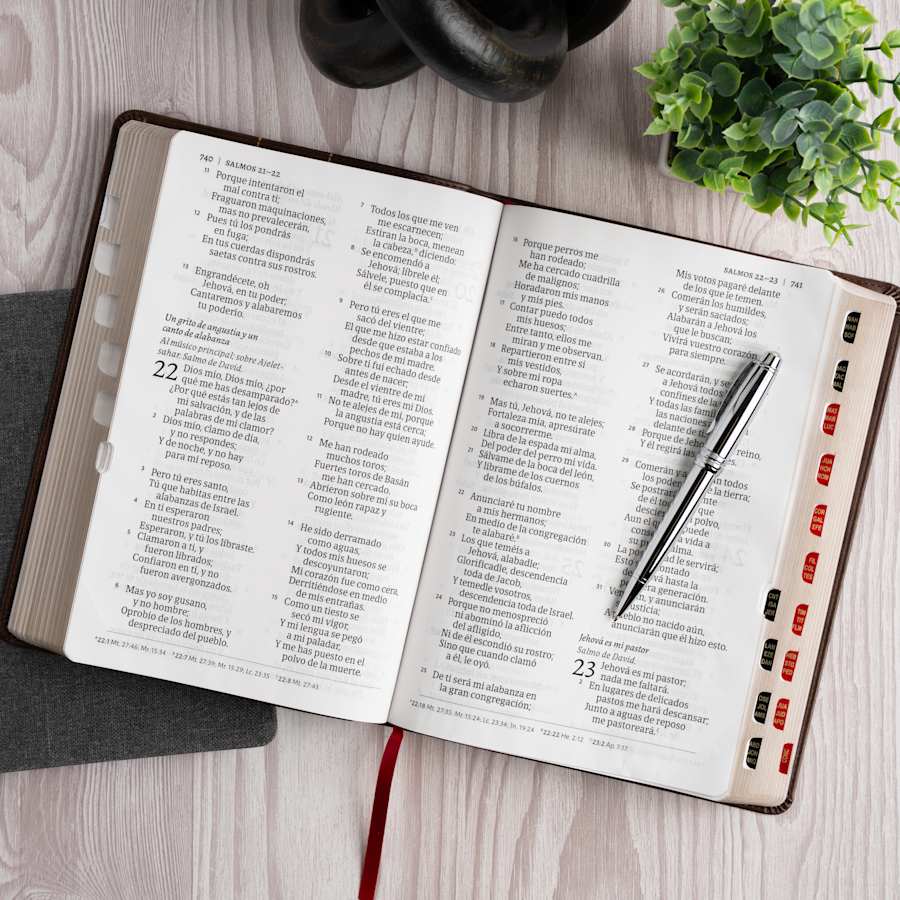 740 | SALMOS 21–22
11 Porque intentaron el
mal contra ti;
Fraguaron maquinaciones,
mas no prevalecerán,
12 Pues tú los pondrás
en fuga;
En tus cuerdas dispondrás
saetas contra sus rostros.
13 Engrandécete, oh
Jehová, en tu poder;
Cantaremos y alabaremos
tu poderío.
Un grito de angustia y un
canto de alabanza
Al músico principal; sobre Ajelet-
sahar. Salmo de David.
22 Dios mío, Dios mío, ¿por
qué me has desamparado?ᵃ
¿Por qué estás tan lejos de
mi salvación, y de las
palabras de mi clamor?
2 Dios mío, clamo de día,
y no respondes;
Y de noche, y no hay
para mí reposo.
3 Pero tú eres santo,
Tú que habitas entre las
alabanzas de Israel.
4 En ti esperaron
nuestros padres;
Esperaron, y tú los libraste.
5 Clamaron a ti, y
fueron librados;
Confiaron en ti, y no
fueron avergonzados.
6 Mas yo soy gusano,
y no hombre;
Oprobio de los hombres, y
despreciado del pueblo.
7 Todos los que me ven
me escarnecen;
Estiran la boca, menean
la cabeza,ᵇ diciendo:
8 Se encomendó a
Jehová; líbrele él;
Sálvele, puesto que en
él se complacía.ᶜ
9 Pero tú eres el que me
sacó del vientre;
El que me hizo estar confiado
desde que estaba a los
pechos de mi madre.
10 Sobre ti fui echado desde
antes de nacer;
Desde el vientre de mi
madre, tú eres mi Dios.
11 No te alejes de mí, porque
la angustia está cerca;
Porque no hay quien ayude.
12 Me han rodeado
muchos toros;
Fuertes toros de Basán
me han cercado.
13 Abrieron sobre mí su boca
Como león rapaz y
rugiente.
14 He sido derramado
como aguas,
Y todos mis huesos se
descoyuntaron;
Mi corazón fue como cera,
Derritiéndose en medio
de mis entrañas.
15 Como un tiesto se
secó mi vigor,
Y mi lengua se pegó
a mi paladar,
Y me has puesto en el
polvo de la muerte.
ᵃ22:1 Mt. 27:46; Mr. 15:34 ᵇ22:7 Mt. 27:39; Mr. 15:29; Lc. 23:35 ᶜ22:8 Mt. 27:43
SALMOS 22–23 | 741
16 Porque perros me
han rodeado;
Me ha cercado cuadrilla
de malignos;
Horadaron mis manos
y mis pies.
17 Contar puedo todos
mis huesos;
Entre tanto, ellos me
miran y me observan.
18 Repartieron entre sí
mis vestidos,
Y sobre mi ropa
echaron suertes.
19 Mas tú, Jehová, no te alejes;
Fortaleza mía, apresúrate
a socorrerme.
20 Libra de la espada mi alma,
Del poder del perro mi vida.
21 Sálvame de la boca del león,
Y líbrame de los cuernos
de los búfalos.
22 Anunciaré tu nombre
a mis hermanos;
En medio de la congregación
te alabaré.
23 Los que teméis a
Jehová, alabadle;
Glorificadle, descendencia
toda de Jacob,
Y temedle vosotros,
descendencia toda de Israel.
24 Porque no menospreció
ni abominó la aflicción
del afligido,
Ni de él escondió su rostro;
Sino que cuando clamó
a él, le oyó.
25 De ti será mi alabanza en
la gran congregación;
Mis votos pagaré delante
de los que le temen.
26 Comerán los humildes,
y serán saciados;
Alabarán a Jehová los
que le buscan;
Vivirá vuestro corazón
para siempre.
27 Se acordarán, y se
a Jehová todos
confines de la
Y todas las fam
las naciones
delante de ti
28 Porque de Jehová reino,
Y él regirá las
29 Comerán y a todos
los poderosos la tierra;
Se postrarán
de él todos
al polvo,
Aun el que puede
conservar la vida a
alma.
30 La posteridad le servirá;
Esto contado
de Jehová hasta la
generación.
31 Vendrán, y anunciarán
justicia;
A pueblo no nacido aún,
anunciarán que él hizo esto.
Jehová es mi pastor
Salmo de David.
23 Jehová es mi pastor;
nada me faltará.
2 En lugares de delicados
pastos me hará descansar;
Junto a aguas de reposo
me pastoreará.
22:18 Mt. 27:35; Mr. 15:24; Lc. 23:34; Jn. 19:24 22:22 He. 2:12 23:2 Ap. 7:17
NAH
HAB
SOF
HAG
ZAC
MAL
MAT
MAR
LUC
JUA
HCH
ROM
COR
GAL
EFE
FIL
COL
TES
CNT
ISA
JER
TIM
TIT
FLM
LAM
EZE
DAN
HEB
STG
PED
OSE
JOL
AMS
JUA
JUD
APO
ABD
JON
MIQ